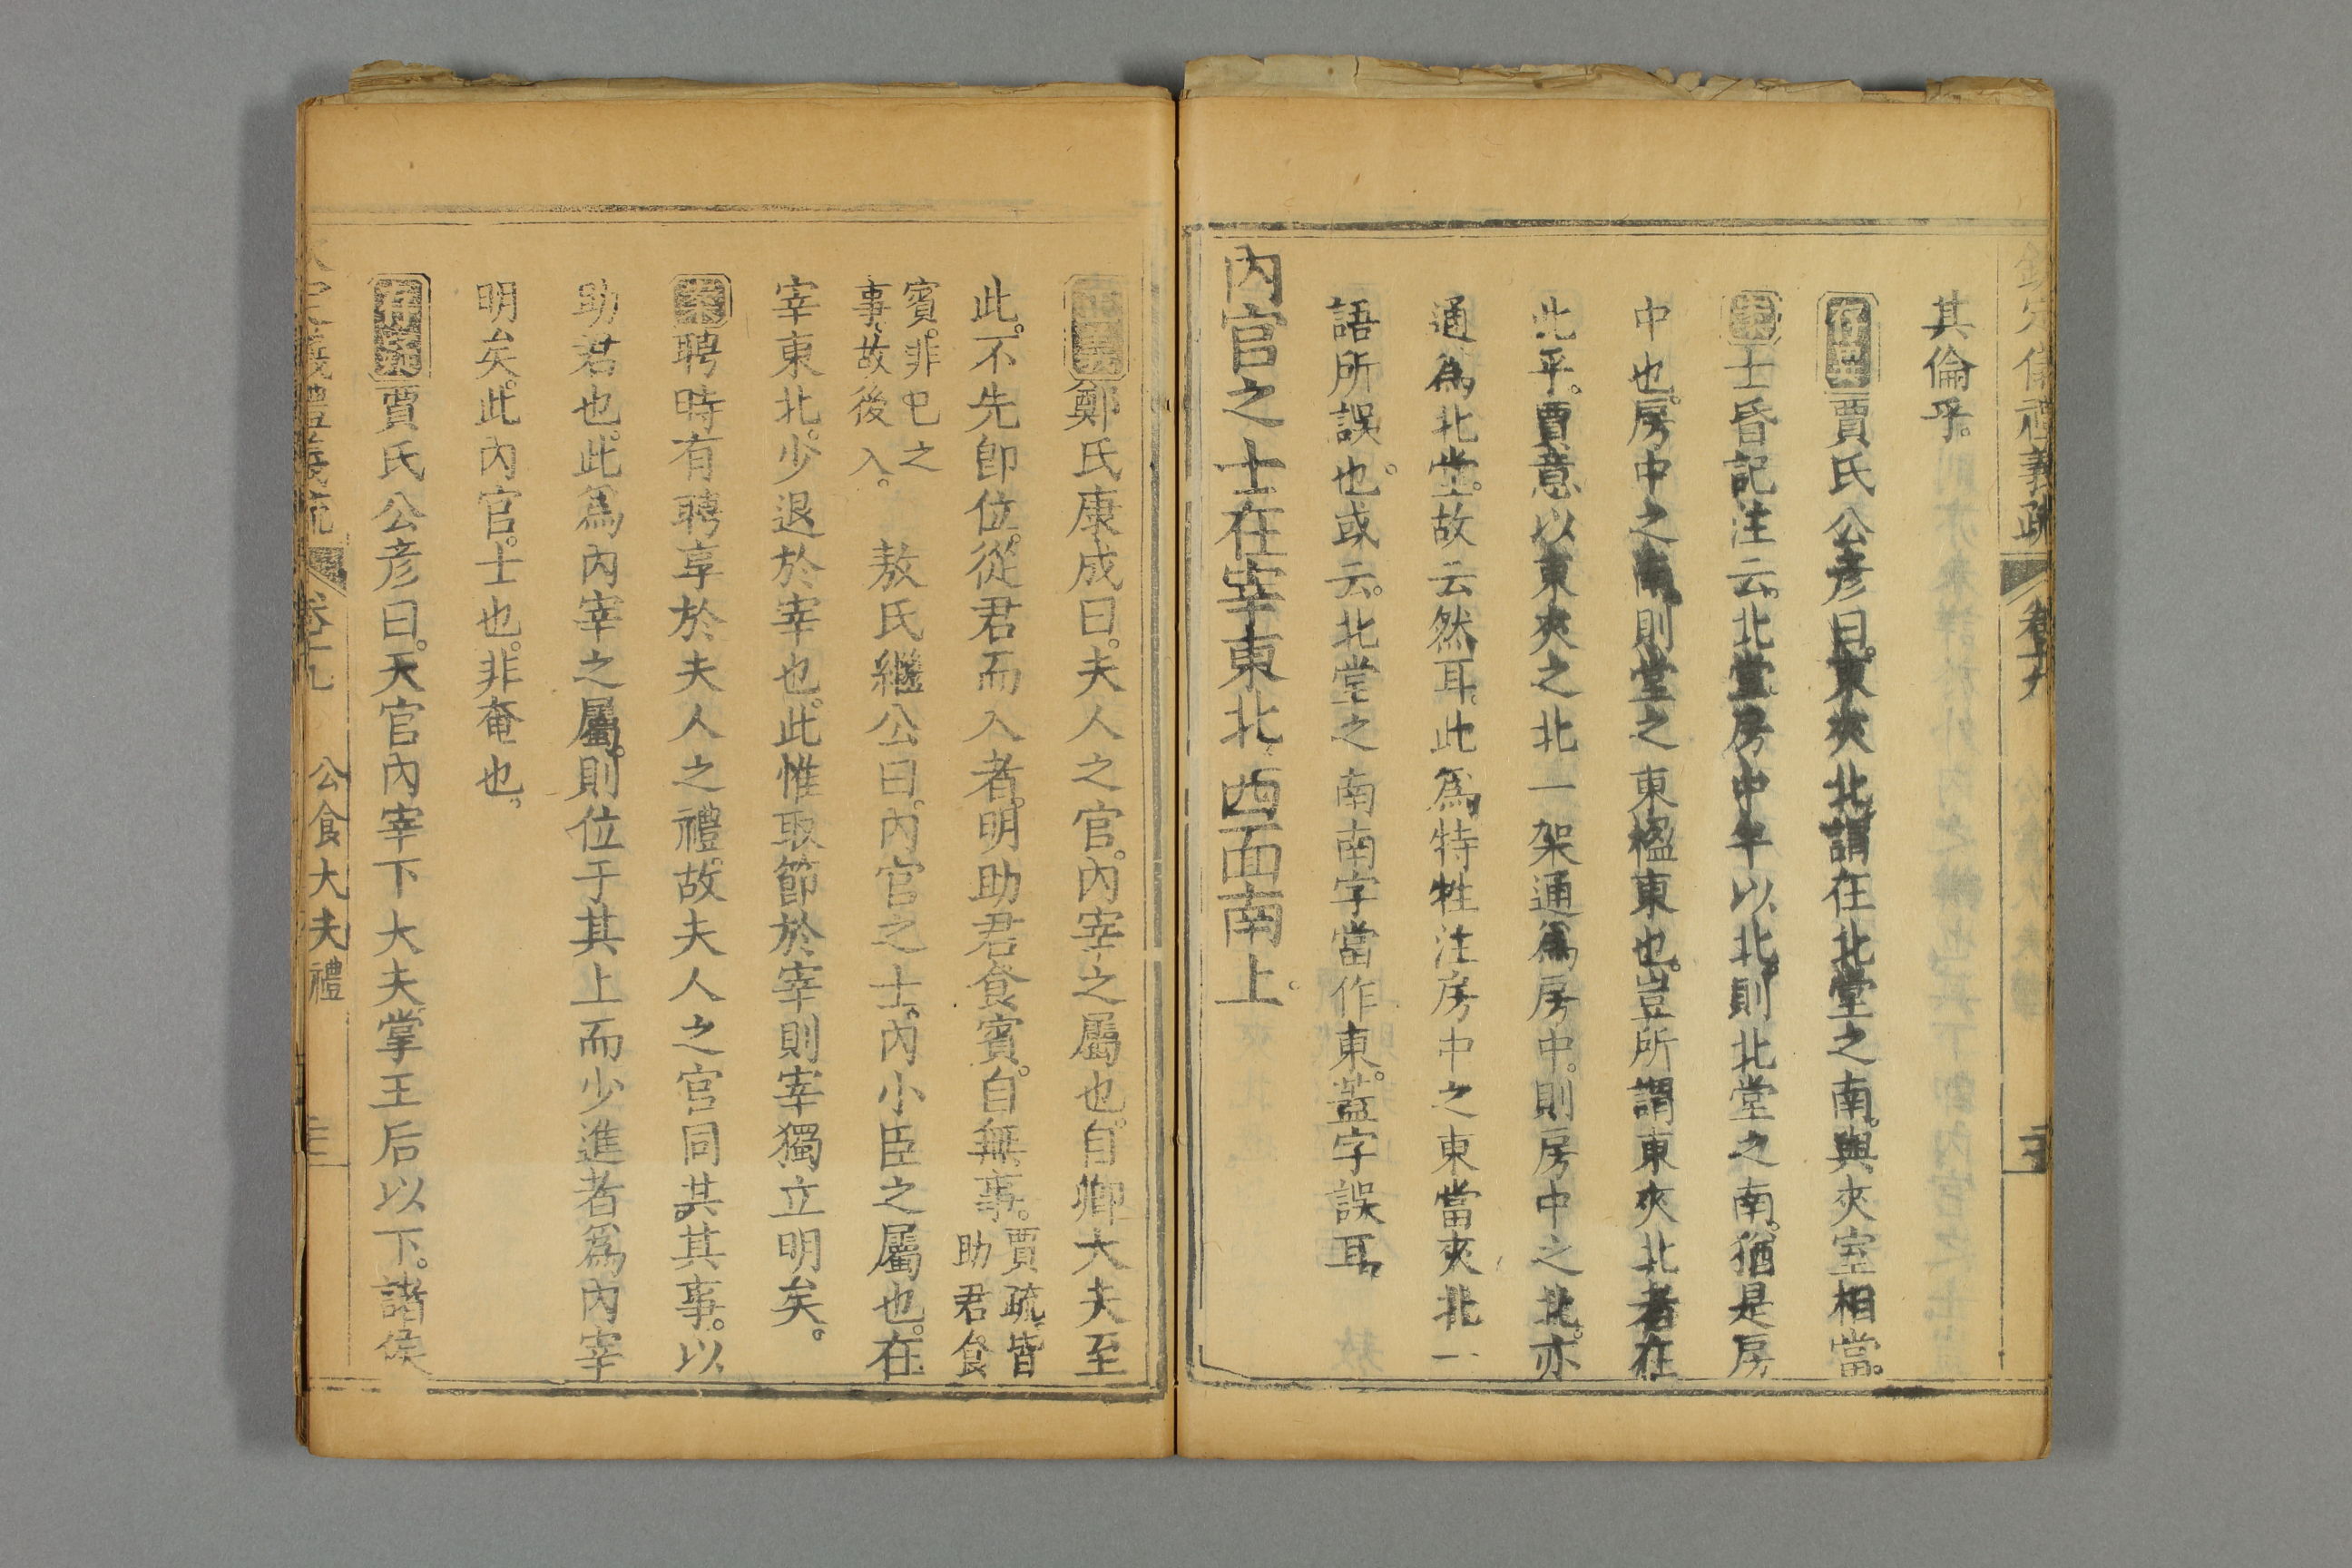 欽定儀禮義疏 卷十九
其倫乎。
存異賈氏公彥曰。東夾北。謂在北堂之南。與夾室相當。
案士昏記注云。北堂。房中半以北。則北堂之南。猶是房
中也。房中之南。則堂之東楹東也。豈所謂東夾北者在
此乎。賈意以東夾之北一架通爲房中。則房中之北。亦
通爲北堂。故云然耳。此爲特牲注房中之東當夾北一
語所誤也。或云。北堂之南南字當作東。蓋字誤耳。
內官之士在宰東北西面南上。
鄭氏康成曰。夫人之官。內宰之屬也。自卿大夫至
此。不先卽位。從君而入者。明助君食賓。自無事。賈疏。皆助君食
賓。非己之事。故後入。 敖氏繼公曰。內官之士。內小臣之屬也。在
宰東北。少退於宰也。此惟取節於宰則宰獨立明矣。
案聘時有聘享於夫人之禮。故夫人之官同其其事。以
助君也。此爲內宰之屬。則位于其上而少進者爲內宰
明矣。此內官。士也。非奄也。
賈氏公彥曰。天官內宰下大夫。掌王后以下。諸侯
欽定儀禮義疏 卷十九 公食大夫禮